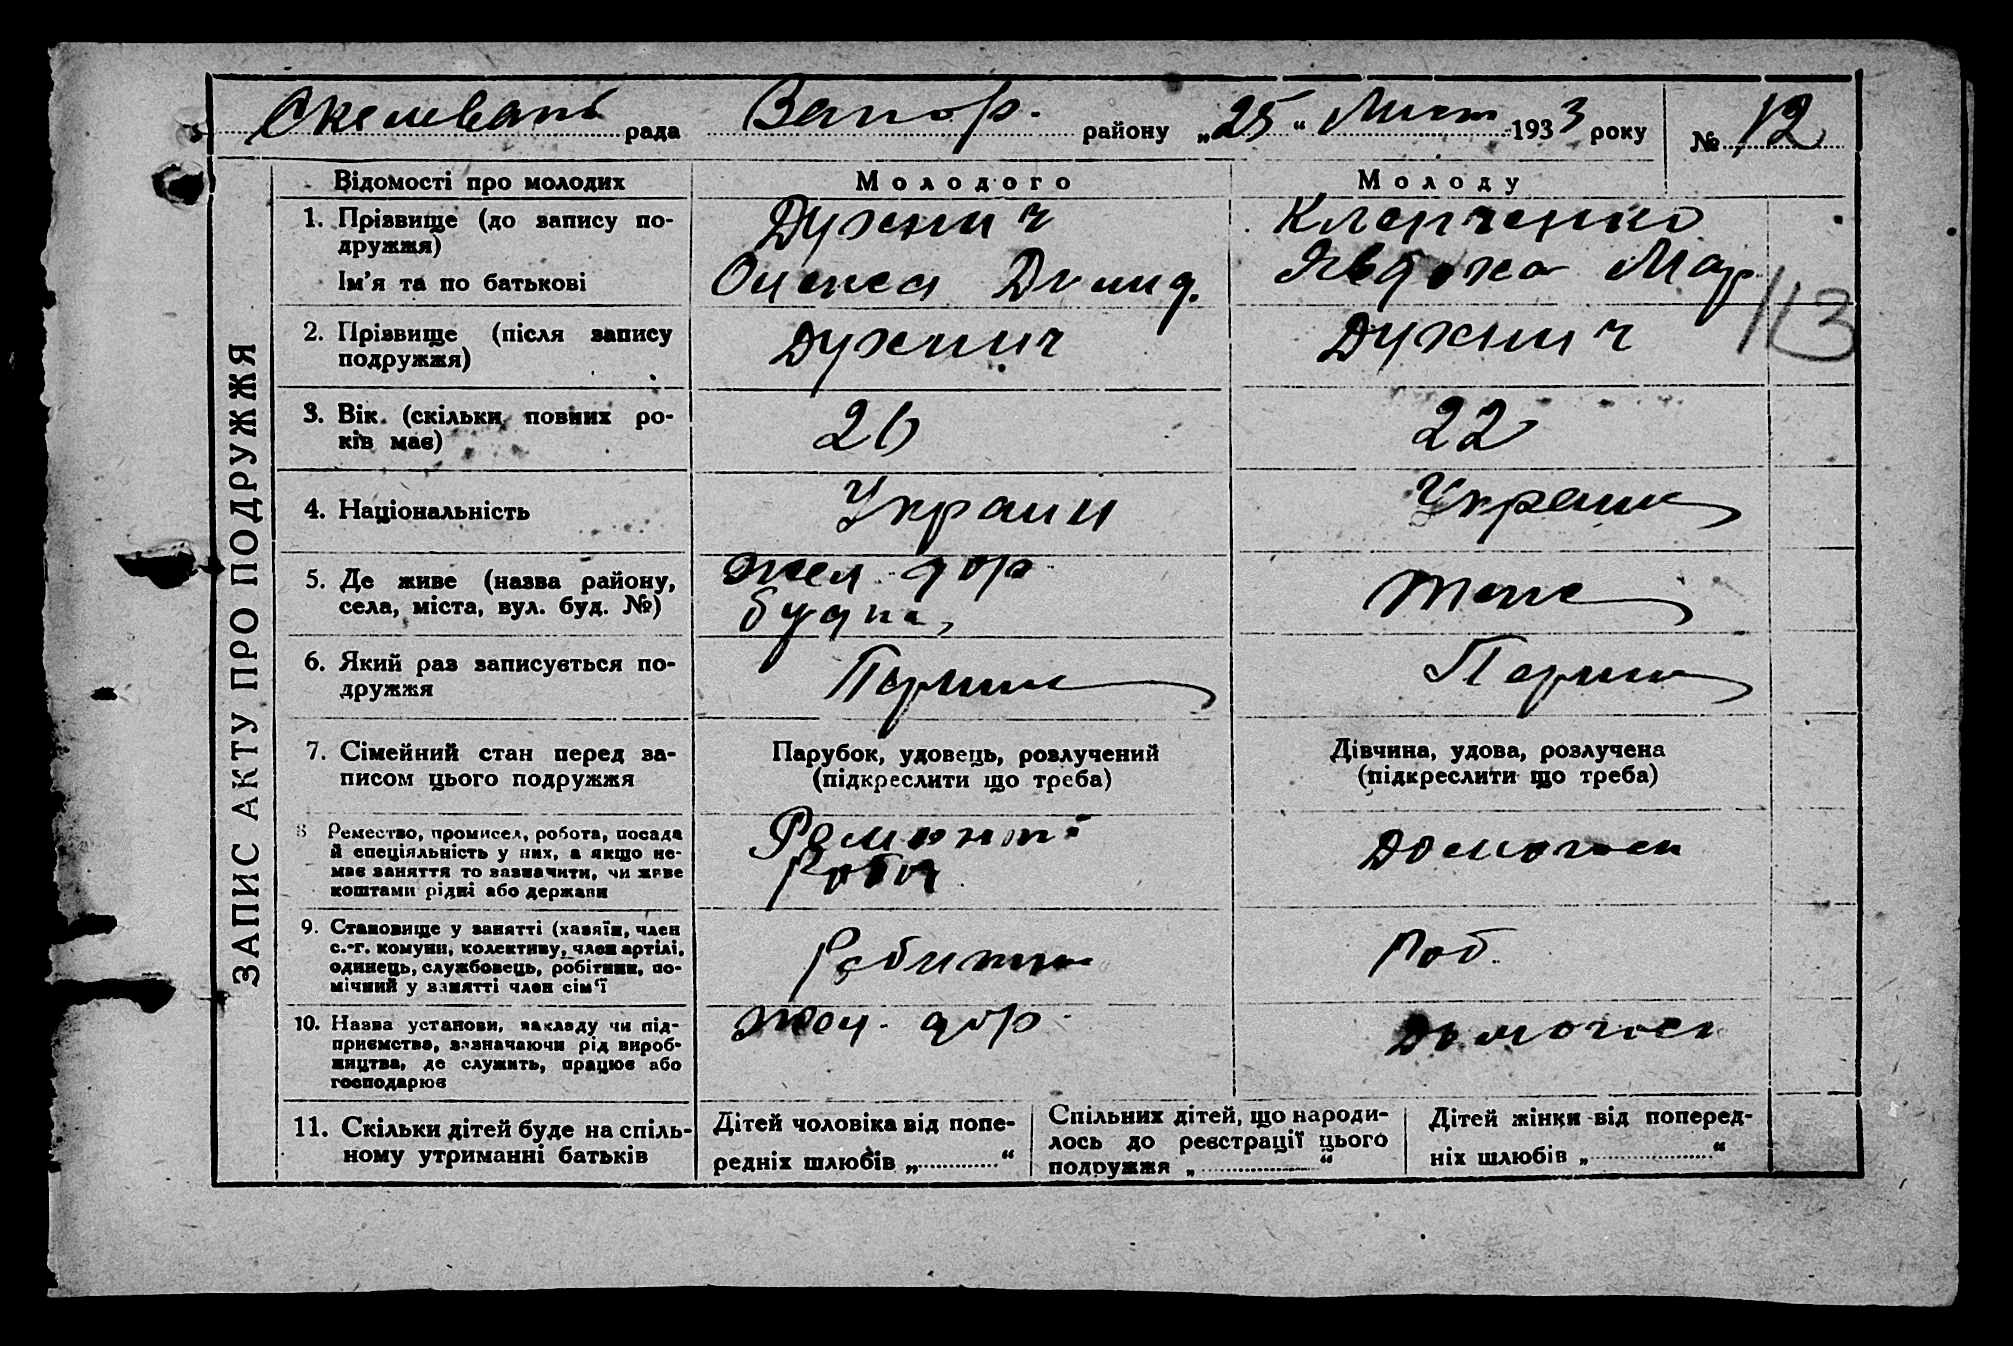 Скелевань рада Запор. району „25“ Лист 1933 року № 12
ЗАПИС АКТУ ПРО ПОДРУЖЖЯ
Відомості про молодих
Молодого
Молоду
1. Прізвище (до запису по-
дружжя)
Ім'я та по батькові
Духнич
Олекса Демид.
Явдоха Мар
113
2. Прізвище (після запису
подружжя)
Духнич
Духнич
3. Вік (скільки повних ро-
ків має)
26
22
4. Національність
Украин
Украин
5. Де живе (назва району,
села, міста, вул. буд. №)
жел. дор
будка,
Тоже
6. Який раз записується по-
дружжя
Перший
Перший
7. Сімейний стан перед за-
писом цього подружжя
Парубок, удовець, розлучений
(підкреслити що треба)
Дівчина, удова, розлучена
(підкреслити що треба)
8 Ремество, промисел, робота, посада
й спеціяльність у них, а якщо не-
має заняття то зазначити, чи живе
коштами рідні або держави
Ремонт.
робоч
Домогосп
9. Становище у занятті (хазяїн, член
с.-г. комуни, колективу, член артілі,
одинець, службовець, робітник, по-
мічний у занятті член сім'ї
Робитник
Роб.
10. Назва установи, закладу чи під-
приємства, зазначаючи рід вироб-
ництва, де служить, працює або
господарює
жел. дор.
Домогосп
11. Скільки дітей буде на спіль-
ному утриманні батьків
Дітей чоловіка від попе-
редніх шлюбів „ “
Спільних дітей, що народи-
лось до реєстрації цього
подружжя „ “
Дітей жінки від поперед-
ніх шлюбів „ “